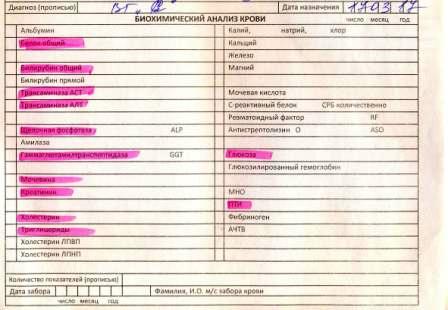 Диагноз (прописью) Дата назначения 17 03 17
БИОХИМИЧЕСКИЙ АНАЛИЗ КРОВИ число месяц год
Альбумин Калий, натрий, хлор
Белок общий Кальций
Железо
Билирубин общий Магний
Билирубин прямой
Трансаминаза АСТ Мочевая кислота
Трансаминаза АЛТ С-реактивный белок СРБ количественно
Ревматоидный фактор RF
Щелочная фосфотаза ALP Антистрептолизин О ASO
Амилаза
Гаммаглютамилтранспептидаза GGT Глюкоза
Глюкозилированный гемоглобин
Мочевина
Креатинин МНО
ПТИ
Холестерин Фибриноген
Триглицериды АЧТВ
Холестерин ЛПВП
Холестерин ЛПНП
Количество показателей (прописью)
Дата забора Фамилия, И.О. м/с забора крови
число месяц год